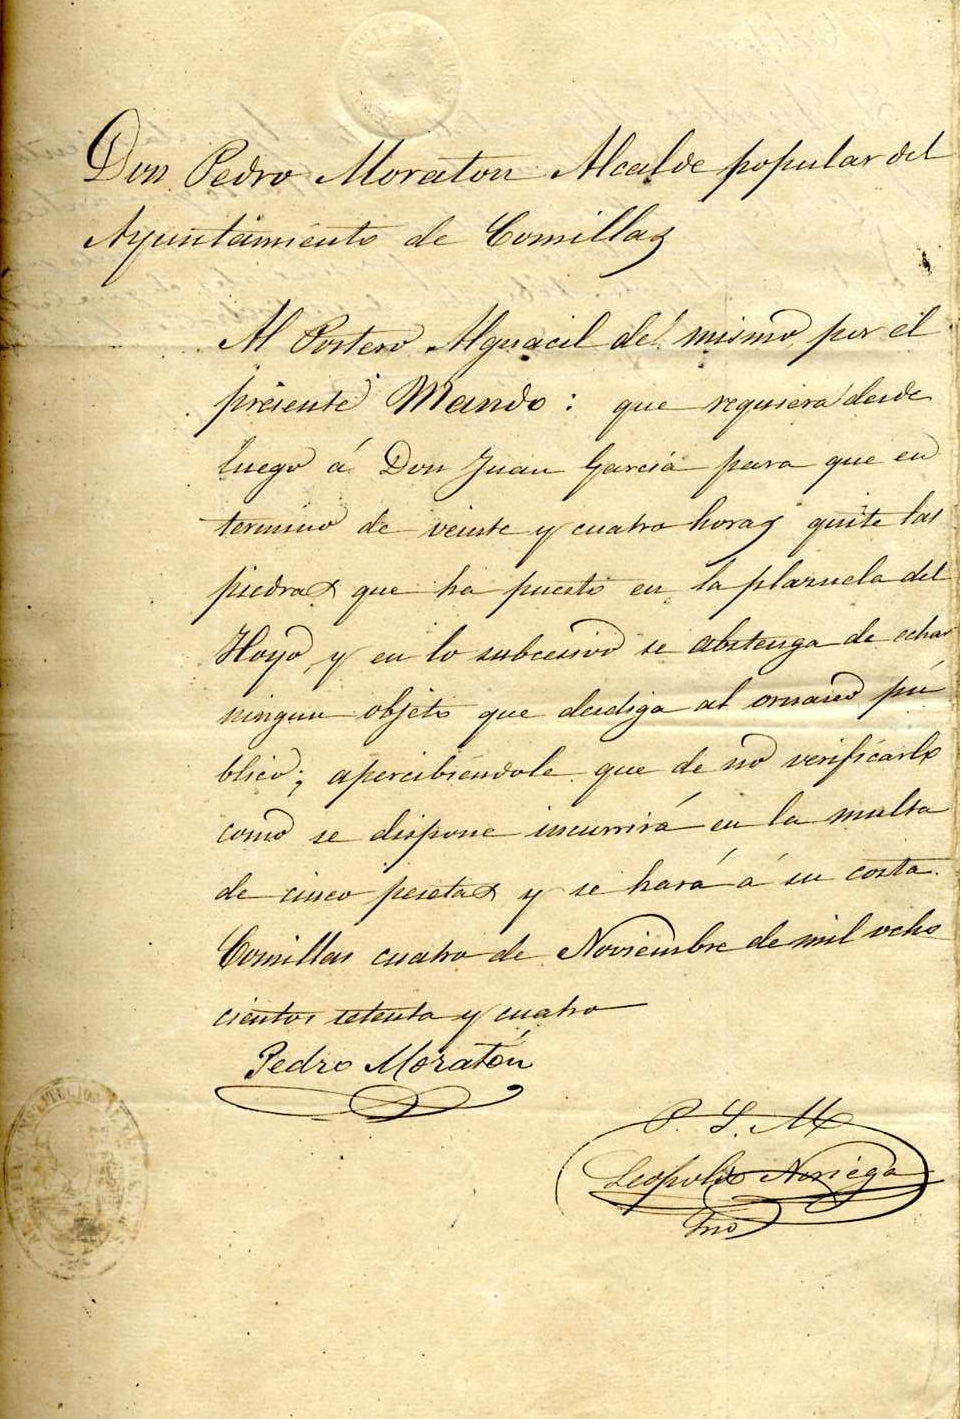 Don Pedro Moraton Alcalde popular del
Ayuntamiento de Comillas
Al Portero Alguacil del mismo por el
presente Mando: que requiera desde
luego á Don Juan Garcia para que en
termino de veinte y cuatro horas quite las
piedras que ha puesto en la plazuela del
Hoyo y en lo subcesivo se abstenga de echar
ningun objeto que desdiga al ornato pú
blico; apercibiendole que de no verificarlo
como se dispone incurrirá en la multa
de cinco pesetas y se hará á su costa.
Comillas cuatro de Noviembre de mil ocho
cientos setenta y cuatro
Pedro Moratón
P. S. M
Leopoldo Noriega
Srio